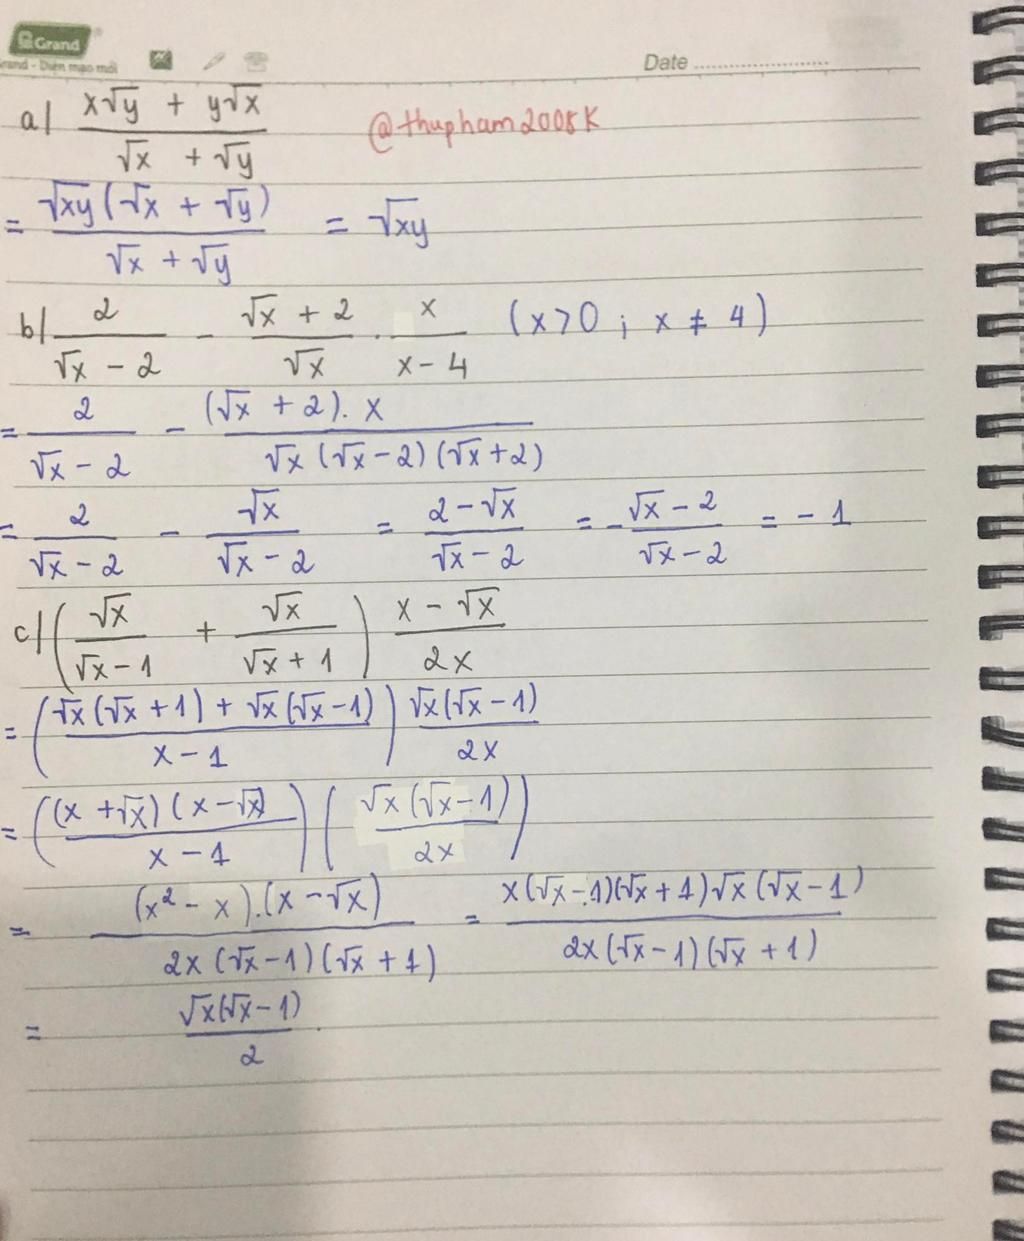 Grand
Grand - Diện mạo mới
Date ........................
a) (x√y + y√x)/(√x + √y)
@thupham2008k
= (√xy(√x + √y))/(√x + √y) = √xy
b) 2/(√x - 2) - (√x + 2)/√x . x/(x - 4) (x > 0 ; x ≠ 4)
= 2/(√x - 2) - ((√x + 2). x)/(√x (√x - 2)(√x + 2))
= 2/(√x - 2) - √x/(√x - 2) = (2 - √x)/(√x - 2) = - (√x - 2)/(√x - 2) = - 1
c) (√x/(√x - 1) + √x/(√x + 1)) (x - √x)/2x
= ((√x(√x + 1) + √x(√x - 1))/(x - 1)) (√x(√x - 1))/2x
= (((x + √x)(x - √x))/(x - 1)) ((√x(√x - 1))/2x)
= ((x² - x).(x - √x))/(2x(√x - 1)(√x + 1)) = (x(√x - 1)(√x + 1)√x(√x - 1))/(2x(√x - 1)(√x + 1))
= (√x(√x - 1))/2 .